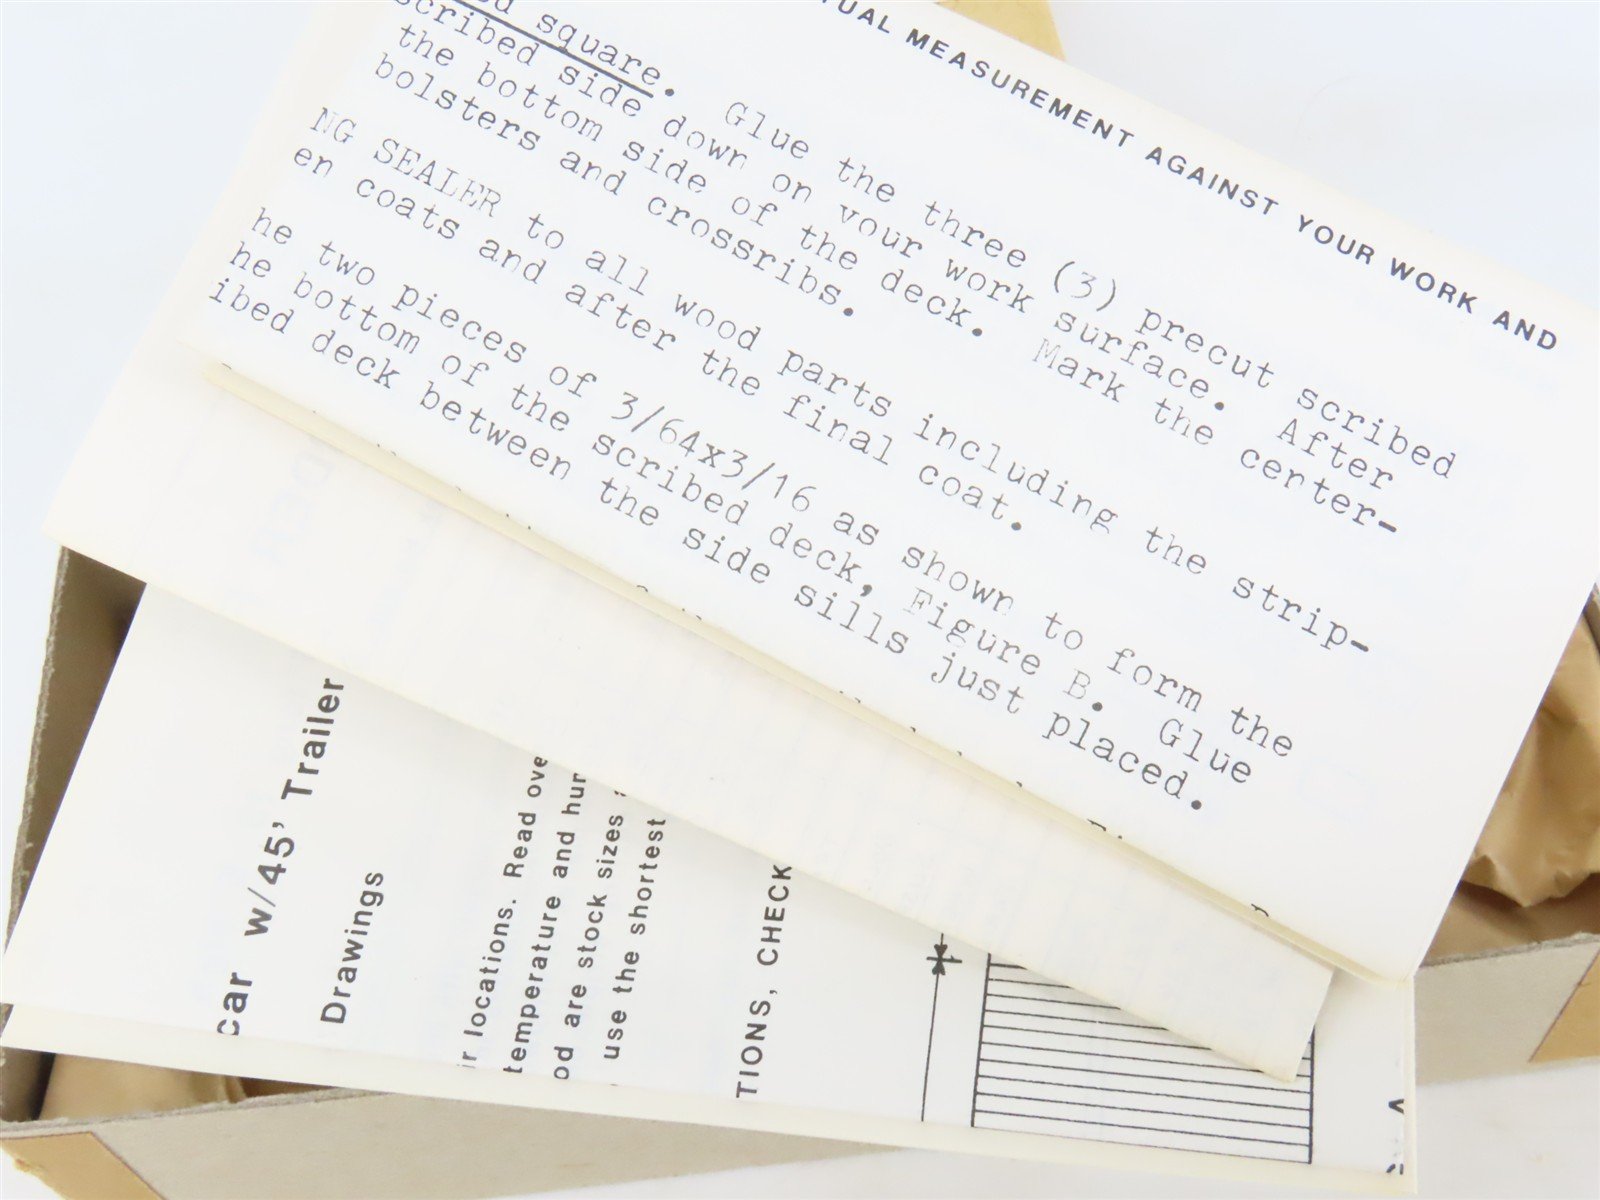 TUAL MEASUREMENT AGAINST YOUR WORK AND
square. Glue the three (3) precut scribed
scribed side down on your work surface. After
the bottom side of the deck. Mark the center-
bolsters and crossribs.
NG SEALER to all wood parts including the strip-
en coats and after the final coat.
he two pieces of 3/64x3/16 as shown to form the
he bottom of the scribed deck, Figure B. Glue
ibed deck between the side sills just placed.
car w/45' Trailer
Drawings
r locations. Read ove
temperature and hur
od are stock sizes
use the shortest
TIONS, CHECK